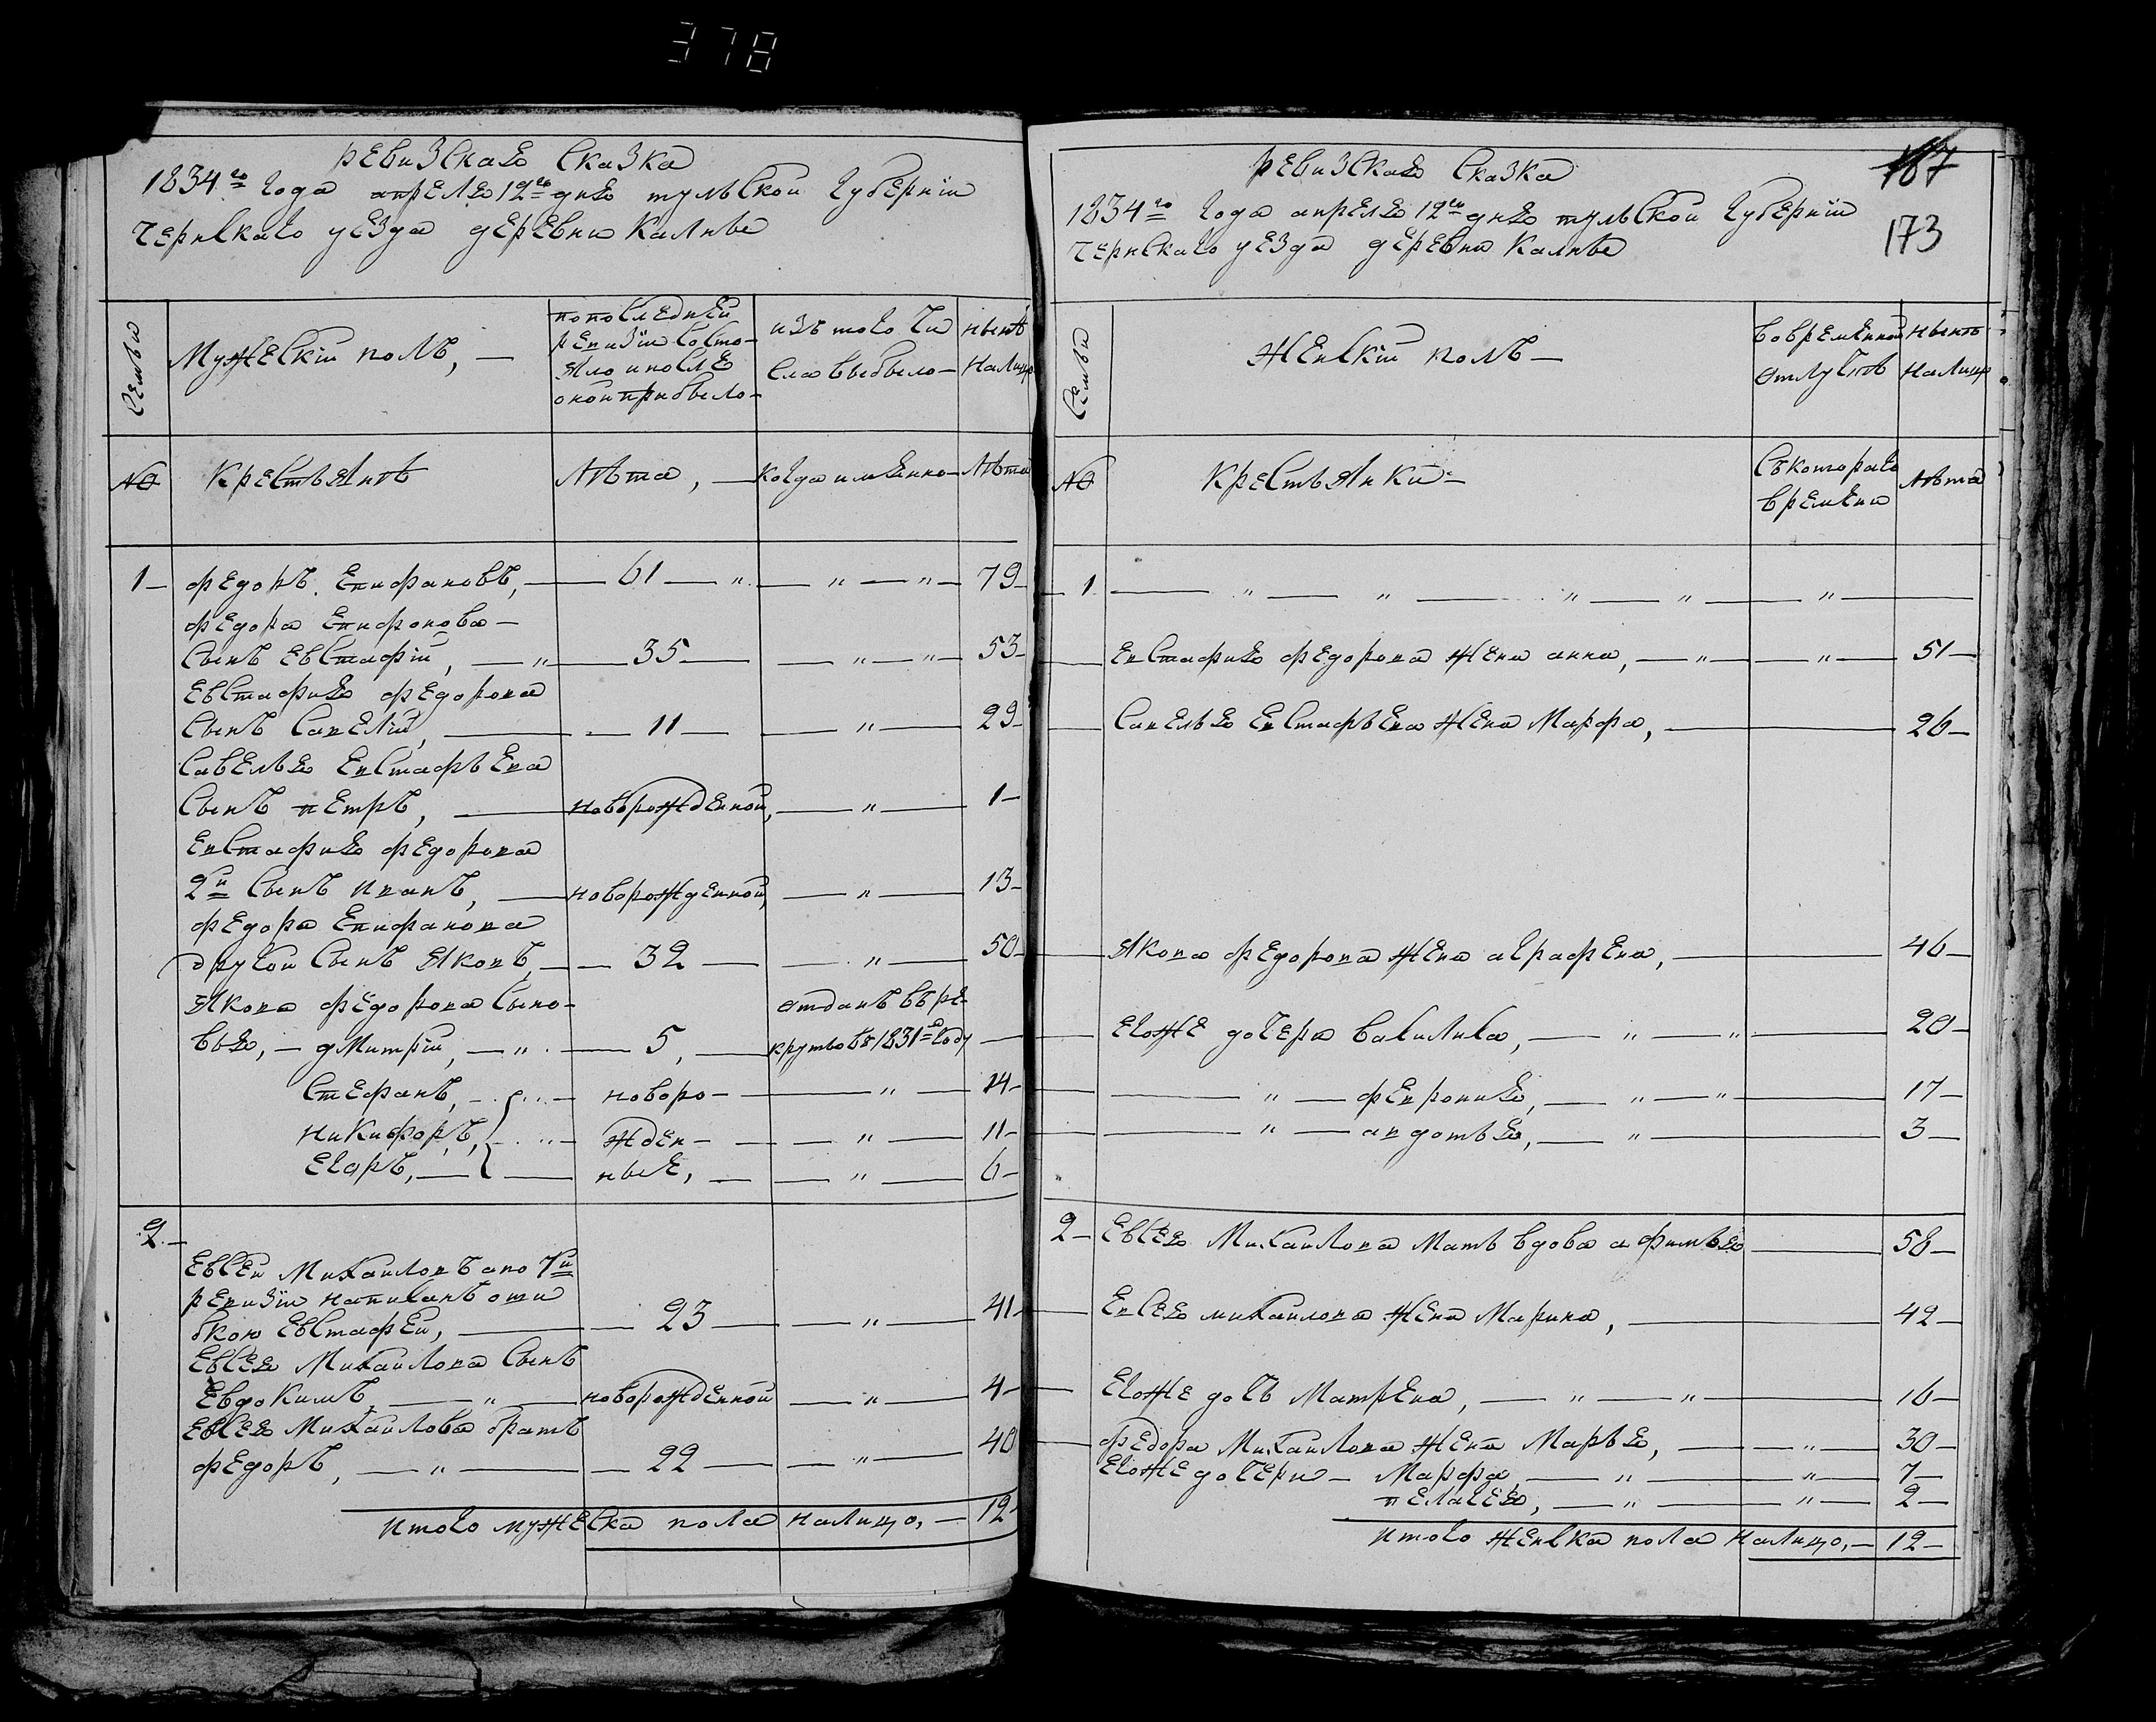 378
ревизская сказка
1834го года апреля 12го дня тульской губернии
Чернскаго уезда деревни Каливе
Семьи
Мужеский полъ,
по последней
ревизии состо-
яло и после
оной прибыло
изъ того чи
сла выбыло
ныне
налицо
№
Крестьяне
Лѣта,
когда именно
Лѣта
1 Федоръ Епифановъ, 61 " " " 79
Федора Епифонова
сынъ Евстафій, " 35 " " 53
Евстафия Федорова
сынъ Савелій, 11 " 29
Савелья Евстафьева
сынъ петръ, новорожденной, " 1
Евстафия Федорова
2й сынъ Иванъ, новорожденной, " 13
Федора Епифанова
другой сынъ Яковъ, 32 " 50
Якова Федорова сыно-
вья, Дмитрій, " 5, отданъ въ ре-
круты въ 1831м году
Стефанъ, " новоро- " 14
Никифоръ, " жден- " 11
Егоръ, ные, " 6
2
Евсей Михайловъ а по 7й
ревизіи написанъ оши
бкою Евстафей, 23 " 41
Евсея Михайлова сынъ
Евдокимъ, " новорожденной " 4
Евсея Михайлова братъ
Федоръ, " 22 " 40
Итого мужеска пола налицо, 12
167
173
ревизская сказка
1834го года апреля 12го дня тульской губернии
Чернскаго уезда деревни Каливе
Семьи
Женскій полъ
во временной
отлучке
ныне
налицо
№
Крестьянки
Съ котораго
времени
Лѣта
1 " " " " "
Евстафия Федорова жена анна, " " 51
Савелья Евстафьева жена Марфа, 26
Якова Федорова жена аграфена, 46
его же дочери Василиса, " " 20
" Феврония, " " 17
" авдотья, " 3
2 Евсея Михайлова мать вдова афимья 58
Евсея михайлова жена Марина, 42
его же дочь Матрена, " " 16
Федора Михайлова жена Марья, " 30
его же дочери Марфа " " 7
пелагея, " " 2
Итого женска пола налицо, 12